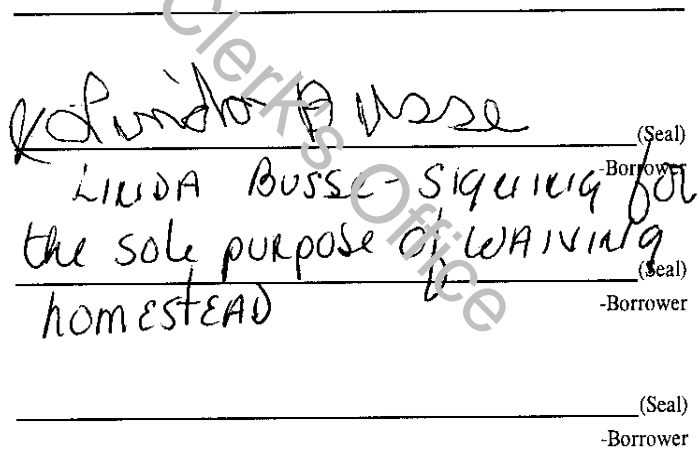 Clerk's Office
Linda Busse
(Seal)
-Borrower
LINDA BUSSE - SIGNING for
the sole purpose of WAIVING
(Seal)
homestEAD
-Borrower
(Seal)
-Borrower